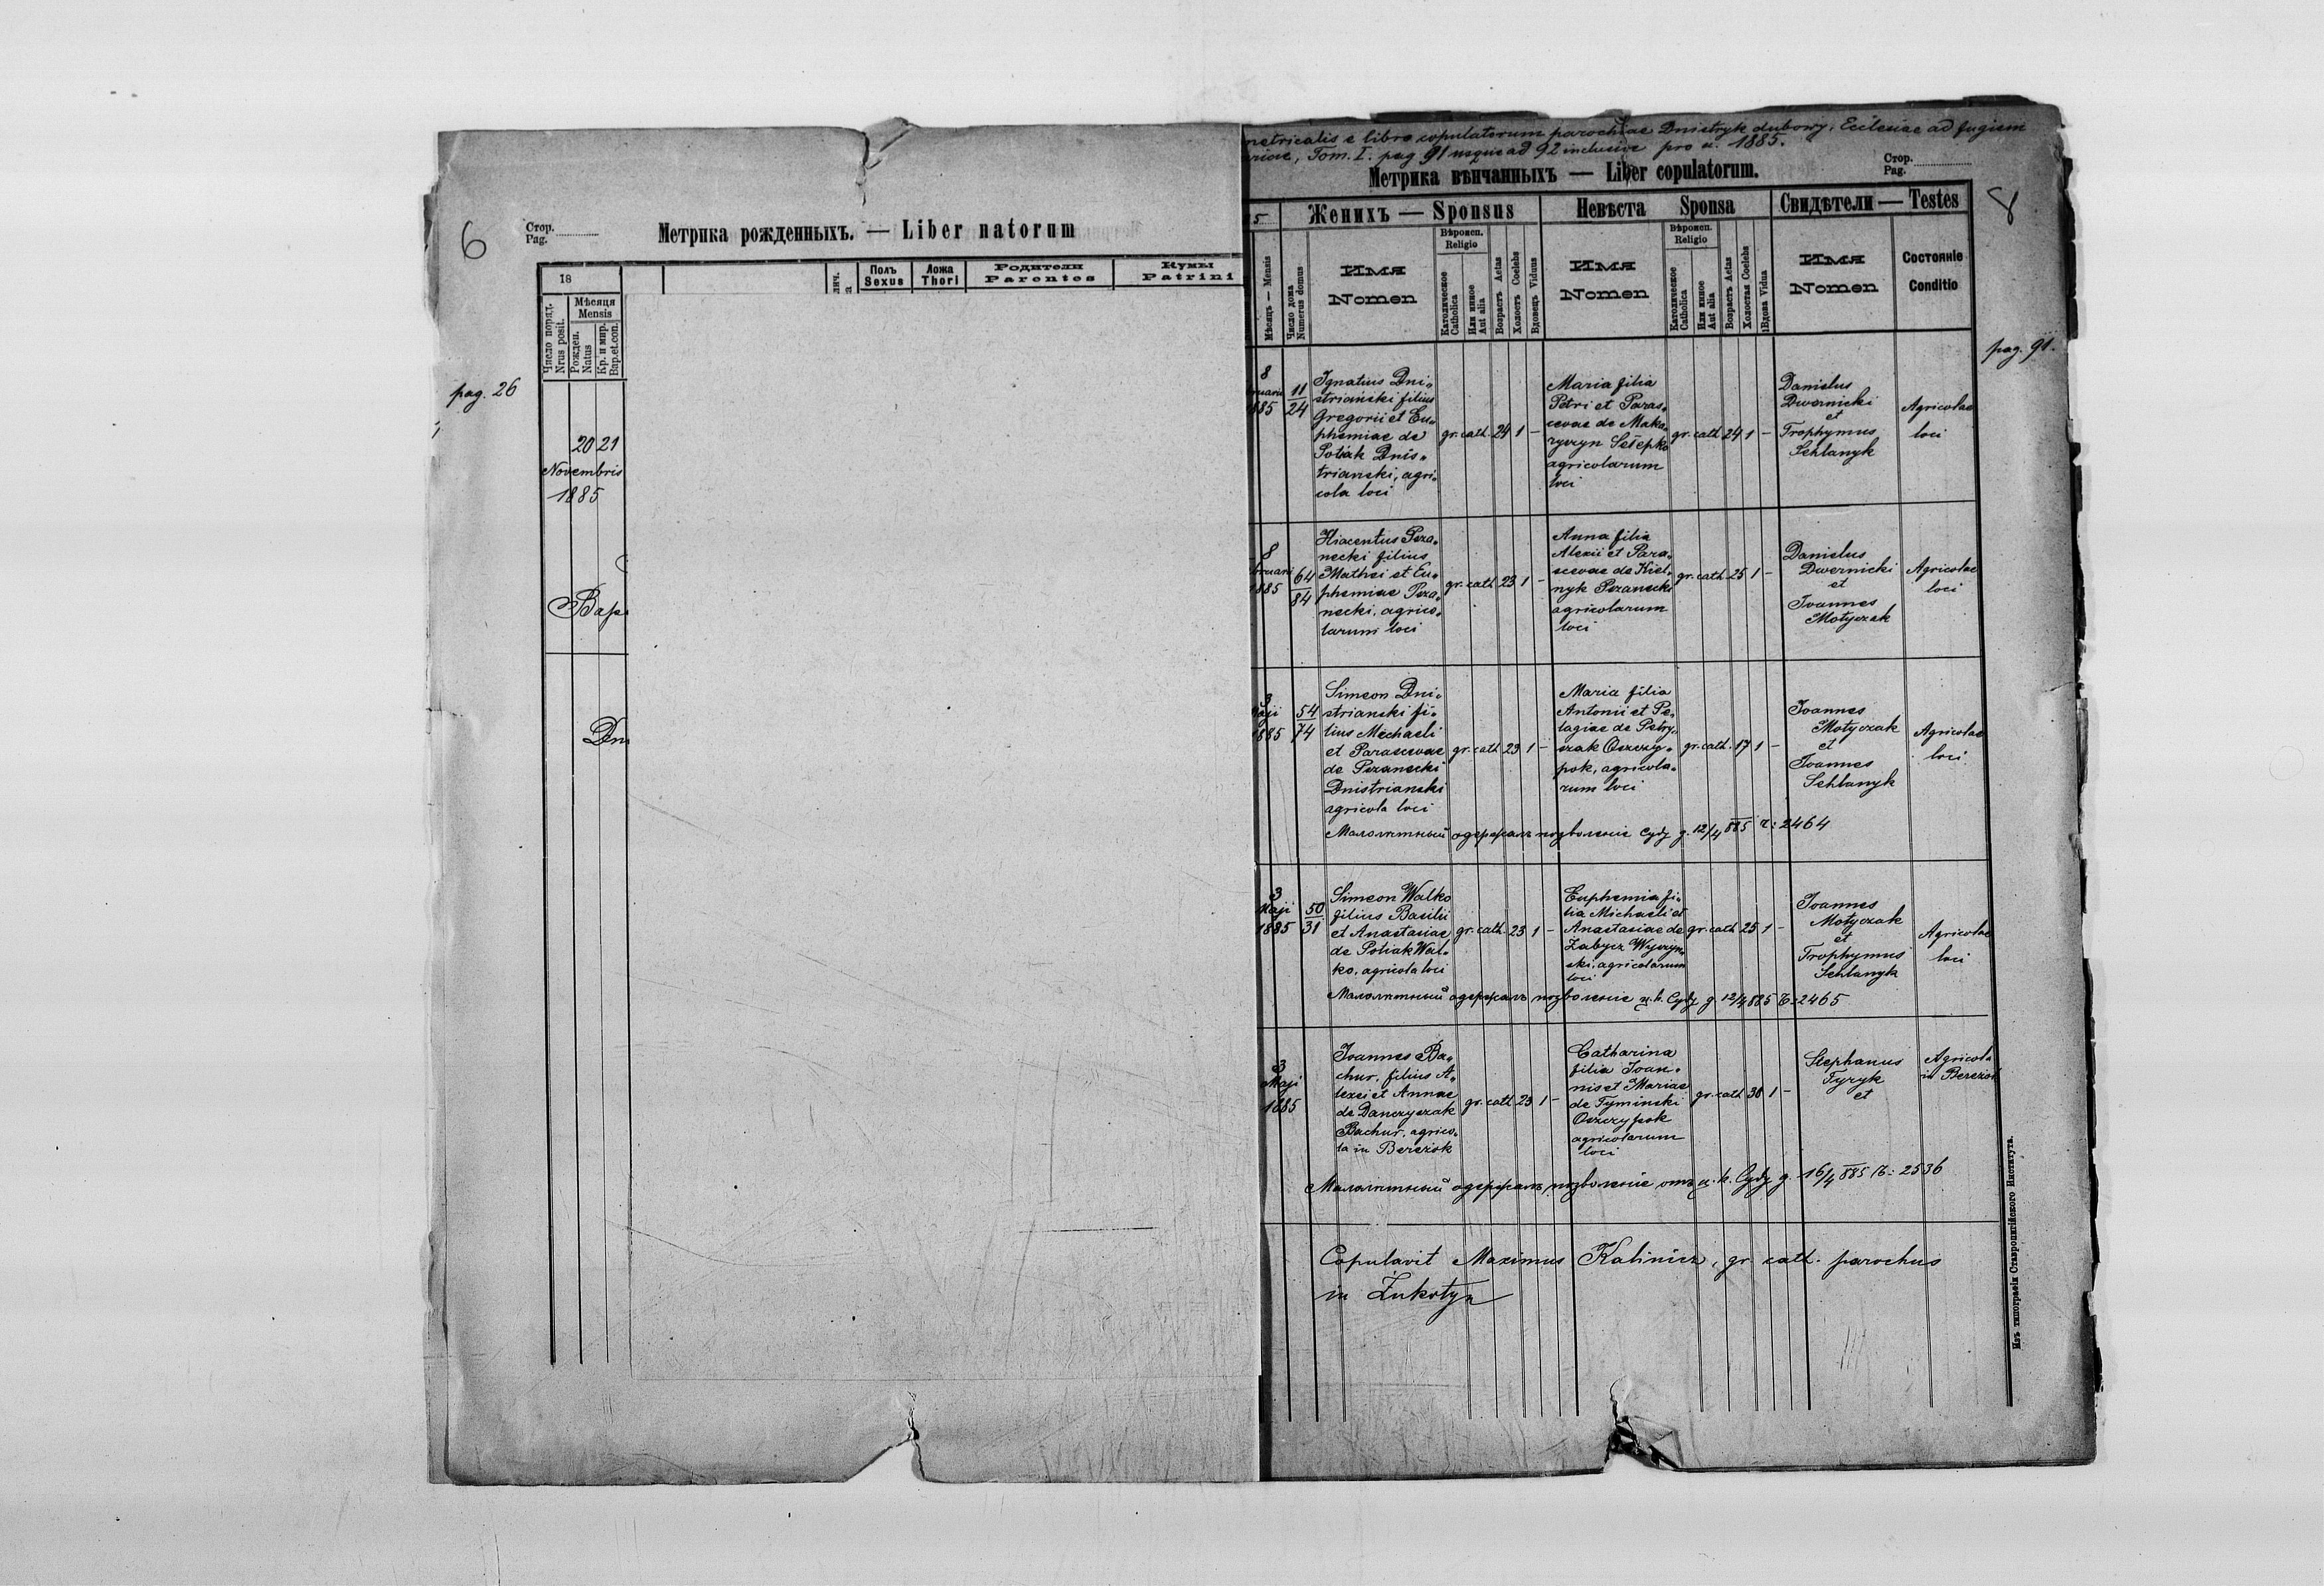 6
Стор.
Pag.
Метрика рожденныхъ. — Liber natorum
18
Число поряд.
Nrus posit.
Мѣсяця
Mensis
Рожден.
Natus
Кр. и мѵр.
Bap.et.con.
Полъ
Sexus
Ложа
Thori
Родители
Parentes
Кумы
Patrini
pag. 26
20 21
Novembris
1885
Bap
Dni
metricalis e libro copulatorum parochiae Dnistryk dubowy, Ecclesiae ad fugiem
Tom. I. pag 91 usque ad 92 inclusive pro a. 1885.
Метрика вѣнчанныхъ — Liber copulatorum.
Стор.
Pag.
8
5
Женихъ — Sponsus
Невѣста Sponsa
Свидѣтели — Testes
Мѣсяцъ — Mensis
Число дома
Numerus domus
Имя
Nomen
Вѣроисп.
Religio
Католическое
Catholica
Или инное
Aut alia
Возрастъ Aetas
Холостъ Coelebs
Вдовецъ Viduus
Имя
Nomen
Вѣроисп.
Religio
Католическое
Catholica
Или инное
Aut alia
Возрастъ Aetas
Холостая Coelebs
Вдова Vidua
Имя
Nomen
Состояніе
Conditio
pag. 91.
8
ruarii
1885
11
24
Ignatius Dni-
striański filius
Gregorii et Eu-
phemiae de
Potiak Dnis-
trianski, agri-
cola loci
gr. cath. 24 1 -
Maria filia
Petri et Paras-
cevae de Maka-
ryczyn
agricolarum
loci
gr. cath 24 1 -
Danielus
Dwernicki
et
Trophymus
Schlanyk
Agricolae
loci
8
bruarii
1885
64
84
Hiacentus Peza-
necki filius
Mathei et Eu-
phemiae Peza-
necki, agrico-
larum loci
gr. cath 23 1 -
Anna filia
Alexii et Para-
scevae de Kiel-
nyk Pezanecki
agricolarum
loci
gr. cath 25 1 -
Danielus
Dwernicki
et
Joannes
Motyczak
Agricolae
loci
3
Maji
1885
54
74
Simeon Dni-
strianski fi-
lius Michaeli
et Parascevae
de Pezanecki
Dnistrianski
agricola loci
gr. cath 23 1 -
Maria filia
Antonii et Pe-
lagiae de Petry-
czak Oszczy-
pok, agricola-
rum loci
gr. cath. 17 1 -
Joannes
Motyczak
et
Joannes
Schlanyk
Agricolae
loci
Малолѣтный одержалъ позволеніе Суду д. 12/4 885 Ч: 2464
3
Maji
1885
50
31
Simeon Walko
filius Basilii
et Anastasiae
de Potiak Wal-
ko, agricola loci
gr. cath. 23 1 -
Euphemia fi-
lia Michaeli et
Anastasiae de
Żabycz Wyczyn-
ski, agricolarum
loci
gr. cath 25 1 -
Joannes
Motyczak
et
Trophymus
Schlanyk
Agricolae
loci
Малолѣтный одержалъ позволеніе ц. к. Суду д 12/4 885 Ч: 2465
3
Maji
1885
Joannes Ba-
chur, filius A-
lexei et Annae
de Danczyczak
Bachur, agrico-
la in Berezok
gr. cath 23 1 -
Catharina
filia Joan-
nis et Mariae
de Tyminski
Oszczypok
agricolarum
loci
gr. cath 38 1 -
Stephanus
Tyzyk
et
Agricola
in Berezok
Малолѣтный одержалъ позволеніе отъ ц. к. Суду д. 16/4 885 Ч: 2536
Copulavit Maximus Kalinicz, gr. cath. parochus
in Żukotyn
Изъ типографіи Ставропигійского Института.